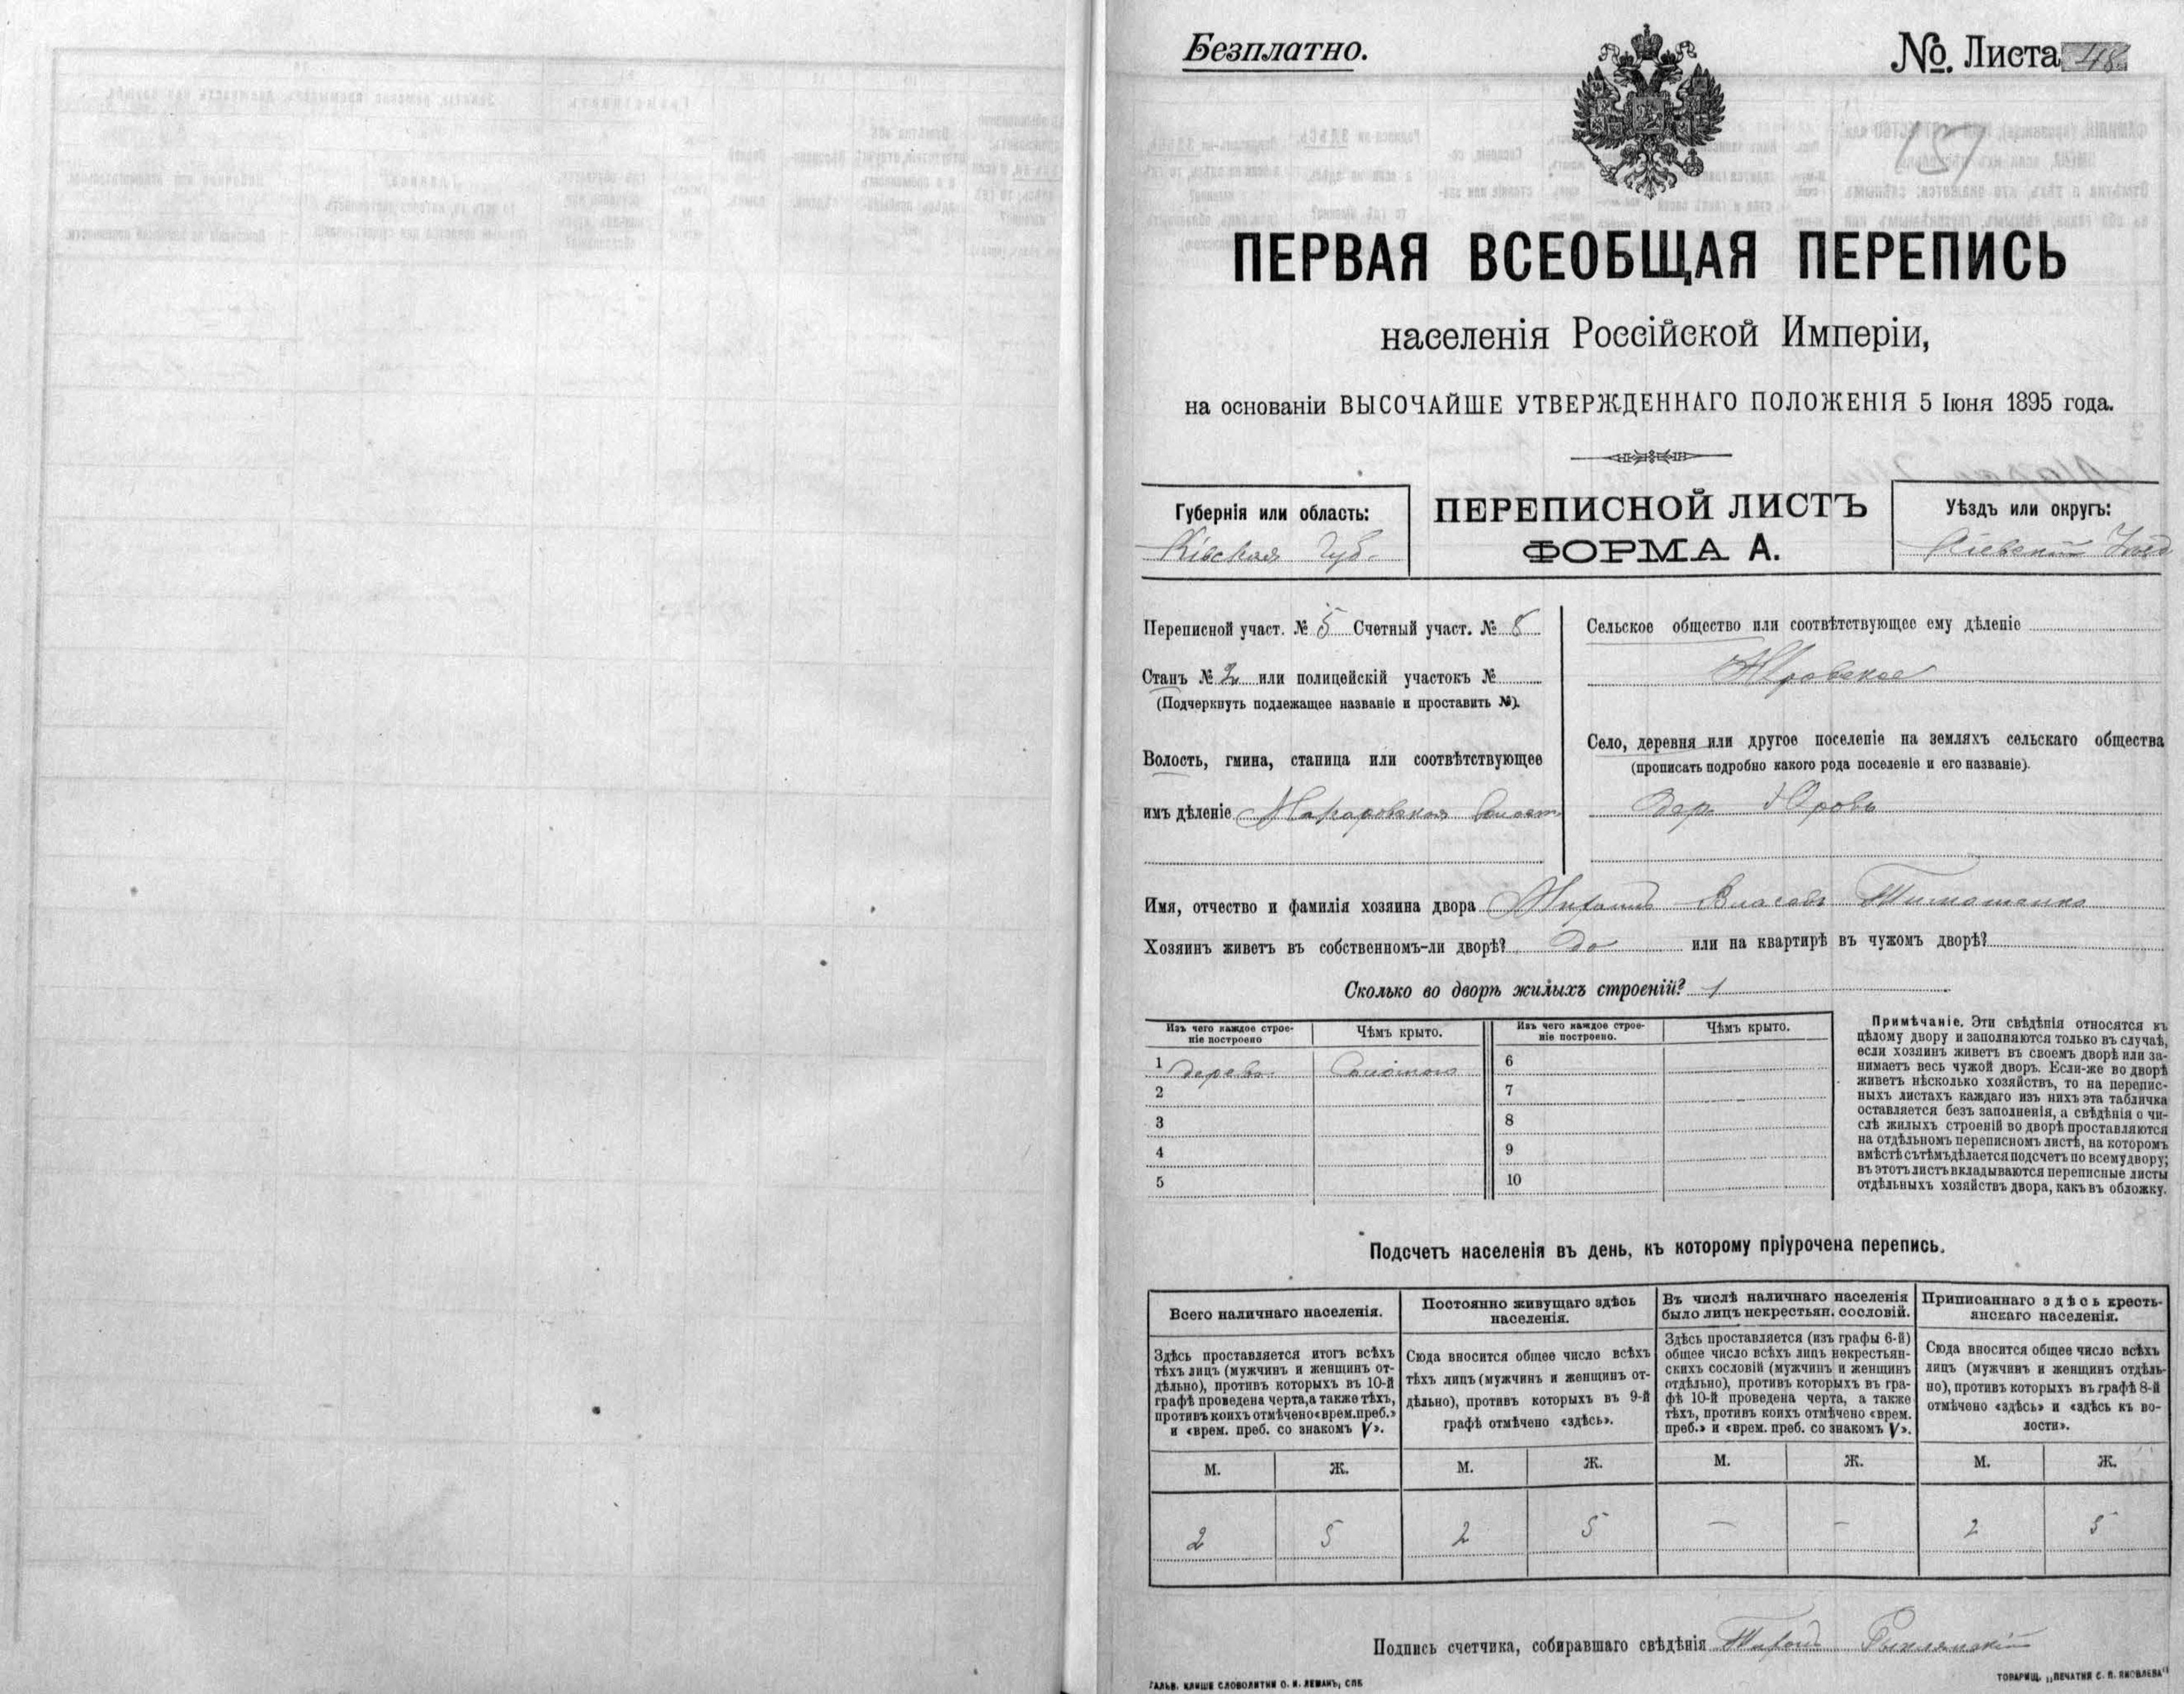 Безплатно.
№ Листа 48
151
ПЕРВАЯ ВСЕОБЩАЯ ПЕРЕПИСЬ
населенія Россійской Имперіи,
на основаніи ВЫСОЧАЙШЕ УТВЕРЖДЕННАГО ПОЛОЖЕНІЯ 5 Іюня 1895 года.
Губернія или область:
Кіевская Губ.
ПЕРЕПИСНОЙ ЛИСТЪ
ФОРМА А.
Уѣздъ или округъ:
Кіевскій Уѣзд
Переписной участ. № 5 Счетный участ. № 8
Станъ № 2 или полицейскій участокъ №
(Подчеркнуть подлежащее названіе и проставить №).
Волость, гмина, станица или соотвѣтствующее
имъ дѣленіе Макаровская Волост
Сельское общество или соотвѣтствующее ему дѣленіе
Юровское
Село, деревня или другое поселеніе на земляхъ сельскаго общества
(прописать подробно какого рода поселеніе и его названіе).
дер. Юровъ
Имя, отчество и фамилія хозяина двора Власовъ Тимошенко
Хозяинъ живетъ въ собственномъ-ли дворѣ? да или на квартирѣ въ чужомъ дворѣ?
Сколько во дворѣ жилыхъ строеній? 1
Изъ чего каждое строе-
ніе построено
Чѣмъ крыто.
Изъ чего каждое строе-
ніе построено.
Чѣмъ крыто.
1 дерева Соломою 6
2 7
3 8
4 9
5 10
Примѣчаніе. Эти свѣдѣнія относятся къ
цѣлому двору и заполняются только въ случаѣ,
если хозяинъ живетъ въ своемъ дворѣ или за-
нимаетъ весь чужой дворъ. Если-же во дворѣ
живетъ нѣсколько хозяйствъ, то на перепис-
ныхъ листахъ каждаго изъ нихъ эта табличка
оставляется безъ заполненія, а свѣдѣнія о чи-
слѣ жилыхъ строеній во дворѣ проставляются
на отдѣльномъ переписномъ листѣ, на которомъ
вмѣстѣ съ тѣмъ дѣлается подсчетъ по всему двору;
въ этотъ листъ вкладываются переписные листы
отдѣльныхъ хозяйствъ двора, какъ въ обложку.
Подсчетъ населенія въ день, къ которому пріурочена перепись.
Всего наличнаго населенія.
Здѣсь проставляется итогъ всѣхъ
тѣхъ лицъ (мужчинъ и женщинъ от-
дѣльно), противъ которыхъ въ 10-й
графѣ проведена черта, а также тѣхъ,
противъ коихъ отмѣчено «врем. преб.»
и «врем. преб. со знакомъ V».
Постоянно живущаго здѣсь
населенія.
Сюда вносится общее число всѣхъ
тѣхъ лицъ (мужчинъ и женщинъ от-
дѣльно), противъ которыхъ въ 9-й
графѣ отмѣчено «здѣсь».
Въ числѣ наличнаго населенія
было лицъ некрестьян. сословій.
Здѣсь проставляется (изъ графы 6-й)
общее число всѣхъ лицъ некрестьян-
скихъ сословій (мужчинъ и женщинъ
отдѣльно), противъ которыхъ въ гра-
фѣ 10-й проведена черта, а также
тѣхъ, противъ коихъ отмѣчено «врем.
преб.» и «врем. преб. со знакомъ V».
Приписаннаго здѣсь кресть-
янскаго населенія.
Сюда вносится общее число всѣхъ
лицъ (мужчинъ и женщинъ отдѣль-
но), противъ которыхъ въ графѣ 8-й
отмѣчено «здѣсь» и «здѣсь къ во-
лости».
М. Ж. М. Ж. М. Ж. М. Ж.
2 5 2 5 — — 2 5
Подпись счетчика, собиравшаго свѣдѣнія Тихонъ
ГАЛЬВ. КЛИШЕ СЛОВОЛИТНИ О. И. ЛЕМАНЪ, СПБ
ТОВАРИЩ. „ПЕЧАТНЯ С. П. ЯКОВЛЕВА"